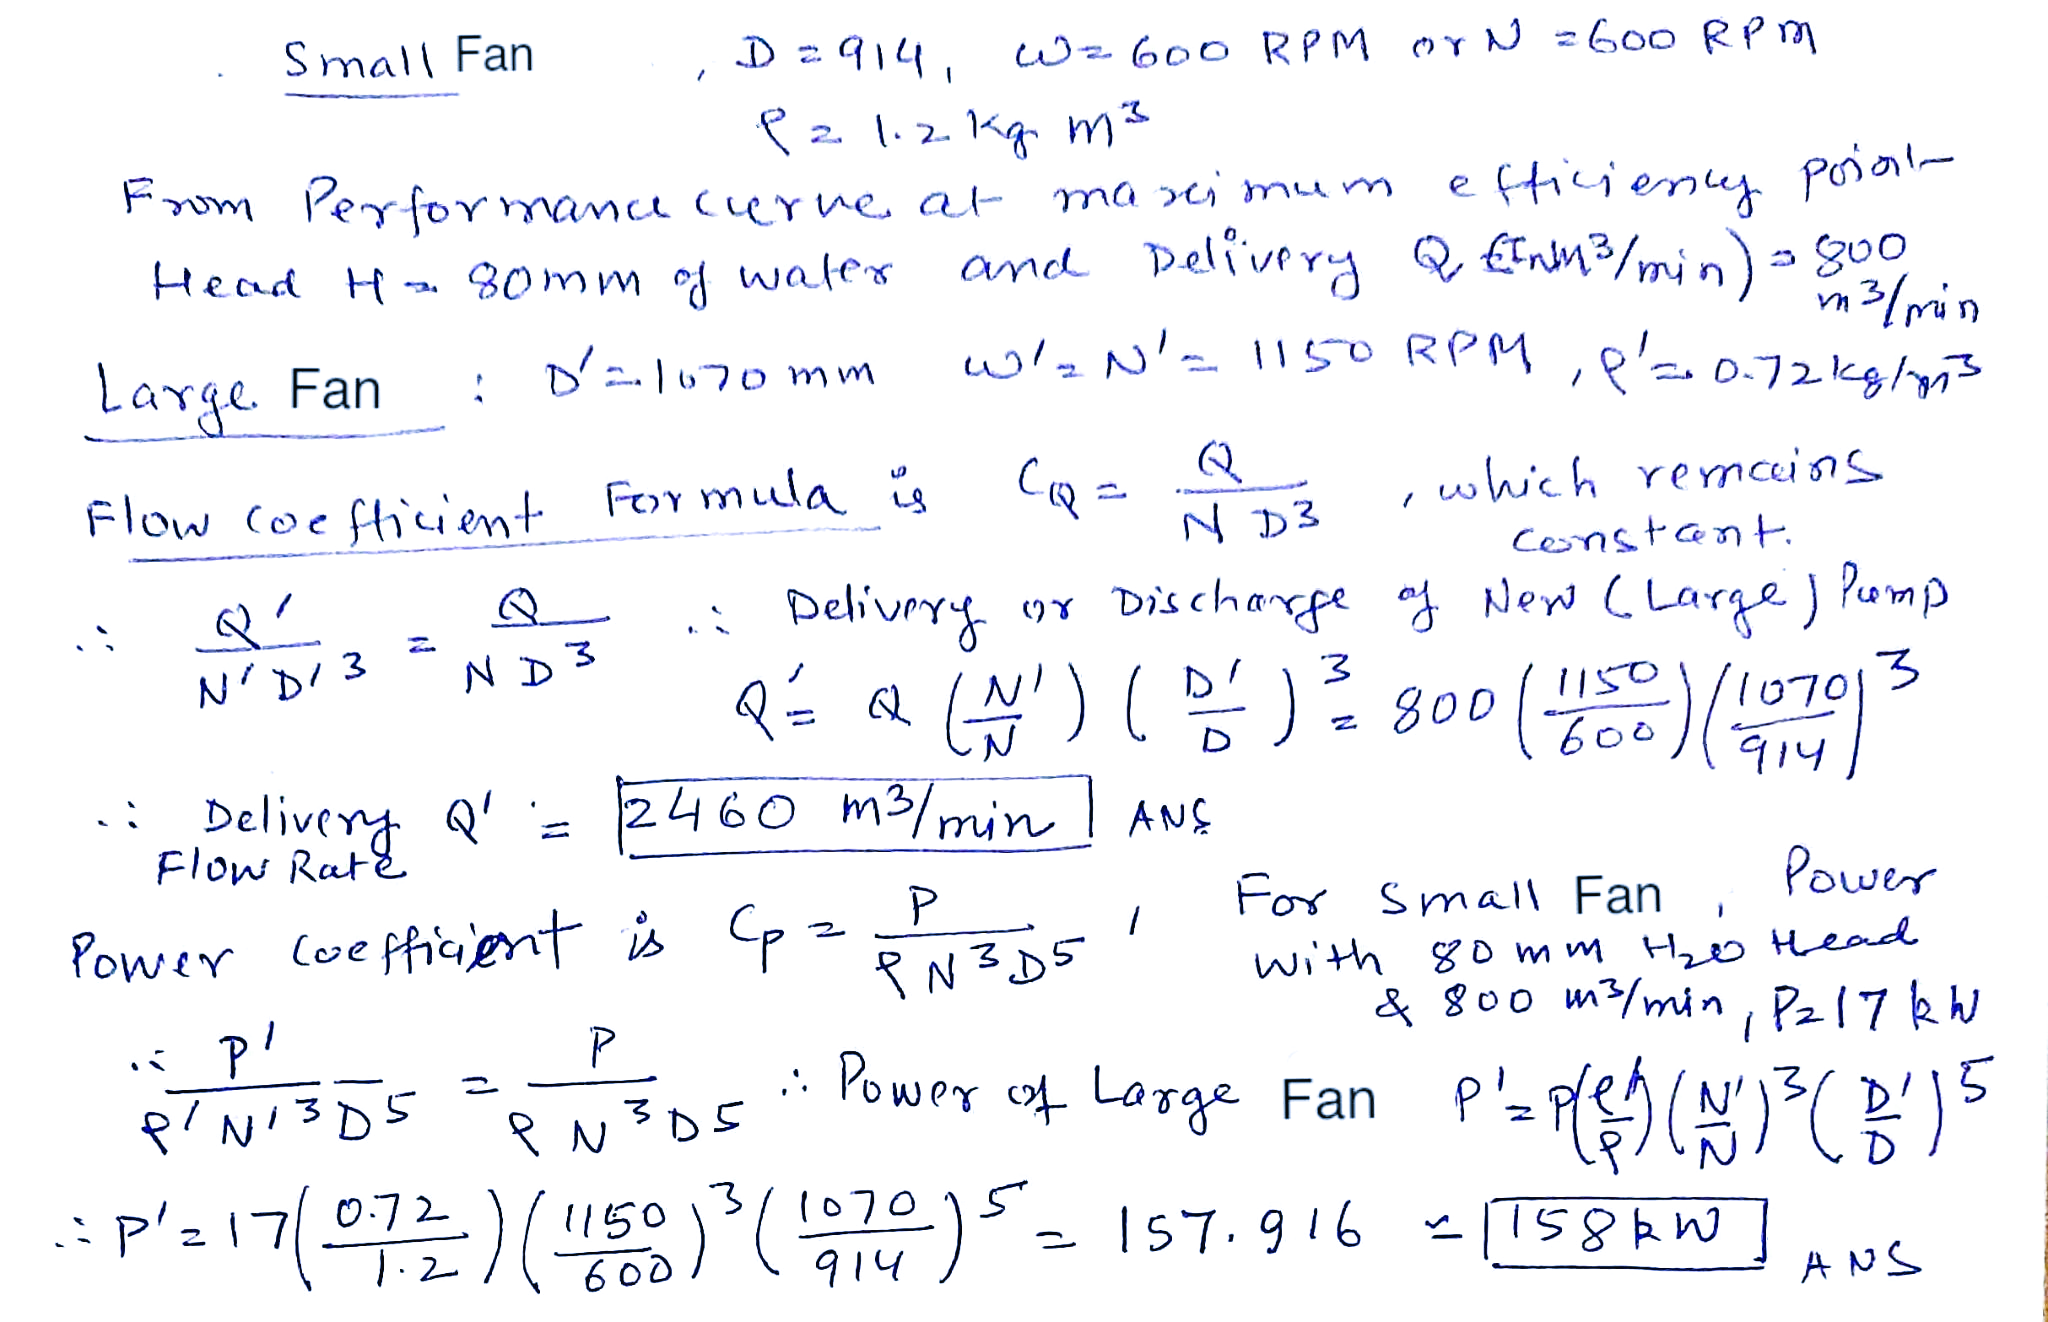 Small Fan , D = 914, ω = 600 RPM or N = 600 RPM
ρ = 1.2 kg m³
From Performance curve at maximum efficiency point
Head H = 80mm of water and Delivery Q (In m³/min) = 800 m³/min
Large Fan : D' = 1070 mm ω' = N' = 1150 RPM , ρ' = 0.72 kg/m³
Flow coefficient Formula is C_Q = Q / N D³ , which remains constant.
∴ Q' / N' D'³ = Q / N D³ ∴ Delivery or Discharge of New (Large) Pump
Q' = Q (N'/N) (D'/D)³ = 800 (1150/600) (1070/914)³
∴ Delivery Flow Rate Q' = 2460 m³/min ANS
Power coefficient is C_P = P / ρ N³ D⁵ , For Small Fan , Power
with 80 mm H₂O Head
& 800 m³/min, P = 17 kW
∴ P' / ρ' N'³ D⁵ = P / ρ N³ D⁵ ∴ Power of Large Fan P' = P(ρ'/ρ) (N'/N)³ (D'/D)⁵
∴ P' = 17 (0.72/1.2) (1150/600)³ (1070/914)⁵ = 157.916 ≈ 158 kW ANS